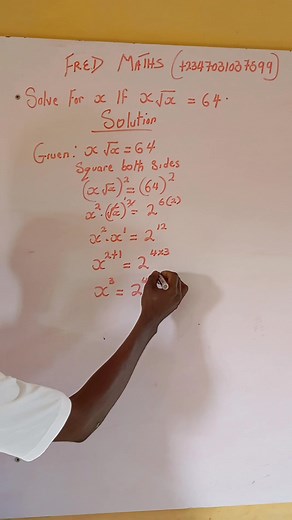 FRED MATHS (+2347031037599)
• Solve For x If x√x = 64.
Solution
Given: x√x = 64
Square both sides
(x√x)² = (64)²
x²·(√x)² = 2⁶⁽²⁾
x²·x¹ = 2¹²
x²⁺¹ = 2⁴ˣ³
x³ = 2